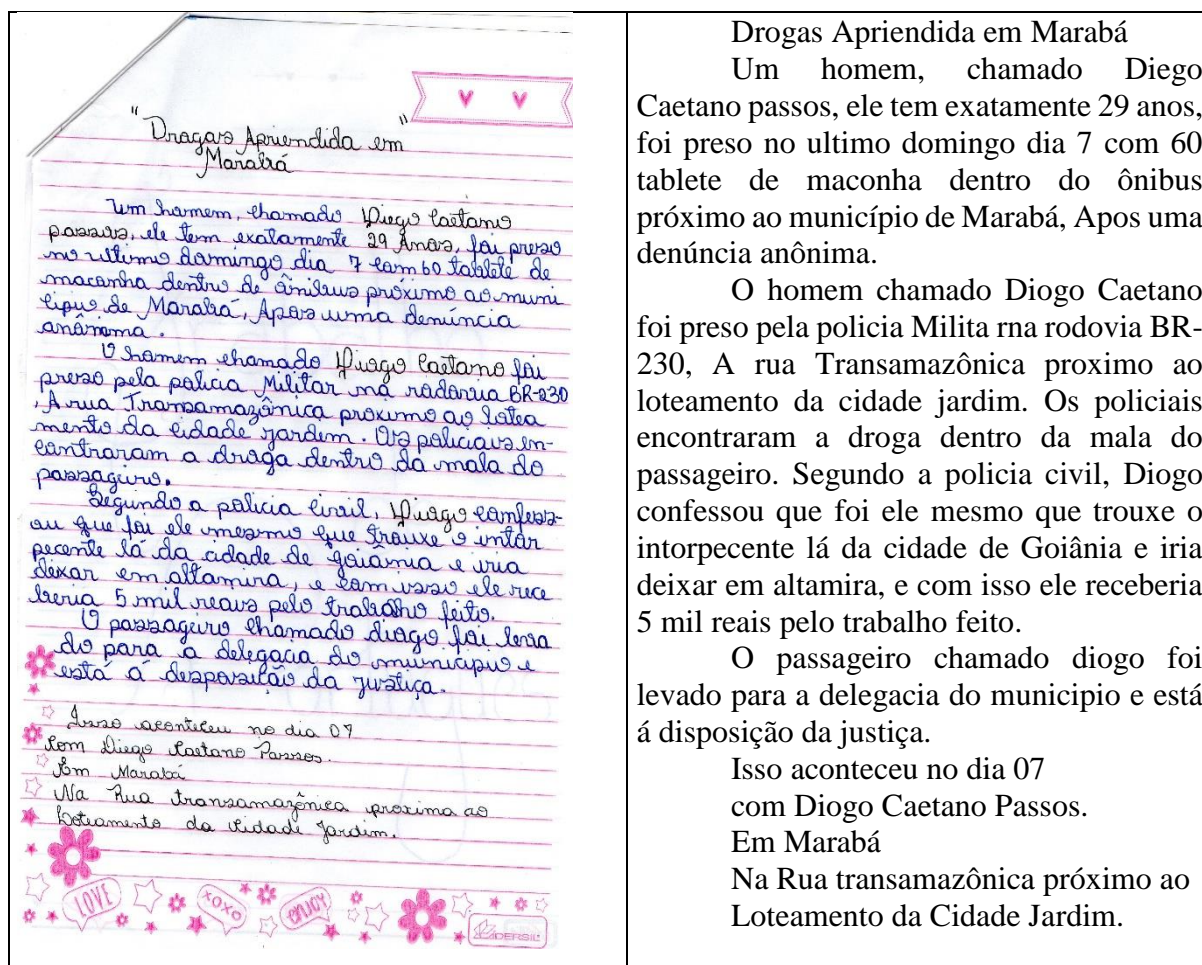 "Drogas Apriendida em"
Marabá
Um homem, chamado Diego Caetano
passos, ele tem exatamente 29 Anos, foi preso
no ultimo domingo dia 7 com 60 tablete de
maconha dentro de ônibus próximo ao muni
cipio de Marabá, Apos uma denúncia
anônima.
O homem chamado Diogo Caetano foi
preso pela policia Militar na rodovia BR-230
, A rua Transamazônica proximo ao lotea
mento da cidade jardem. Os policiais en-
contraram a droga dentro da mala do
passageiro.
Segundo a policia civil, Diogo confess-
ou que foi ele mesmo que trouxe o intor
pecente lá da cidade de goiânia e iria
deixar em altamira, e com isso ele rece
beria 5 mil reais pelo trabalho feito.
O passageiro chamado diogo foi leva
do para a delegacia do municipio e
está á desposição da justiça.
Isso aconteceu no dia 07
Com Diego Caetano Passos.
Em Marabá
Na Rua transamazônica proxima ao
Loteamento da Cidade Jardim.
LOVE
XOXO
ENJOY
DERSIL
Drogas Apriendida em Marabá
Um homem, chamado Diego
Caetano passos, ele tem exatamente 29 anos,
foi preso no ultimo domingo dia 7 com 60
tablete de maconha dentro do ônibus
próximo ao município de Marabá, Apos uma
denúncia anônima.
O homem chamado Diogo Caetano
foi preso pela policia Milita rna rodovia BR-
230, A rua Transamazônica proximo ao
loteamento da cidade jardim. Os policiais
encontraram a droga dentro da mala do
passageiro. Segundo a policia civil, Diogo
confessou que foi ele mesmo que trouxe o
intorpecente lá da cidade de Goiânia e iria
deixar em altamira, e com isso ele receberia
5 mil reais pelo trabalho feito.
O passageiro chamado diogo foi
levado para a delegacia do municipio e está
á disposição da justiça.
Isso aconteceu no dia 07
com Diogo Caetano Passos.
Em Marabá
Na Rua transamazônica próximo ao
Loteamento da Cidade Jardim.